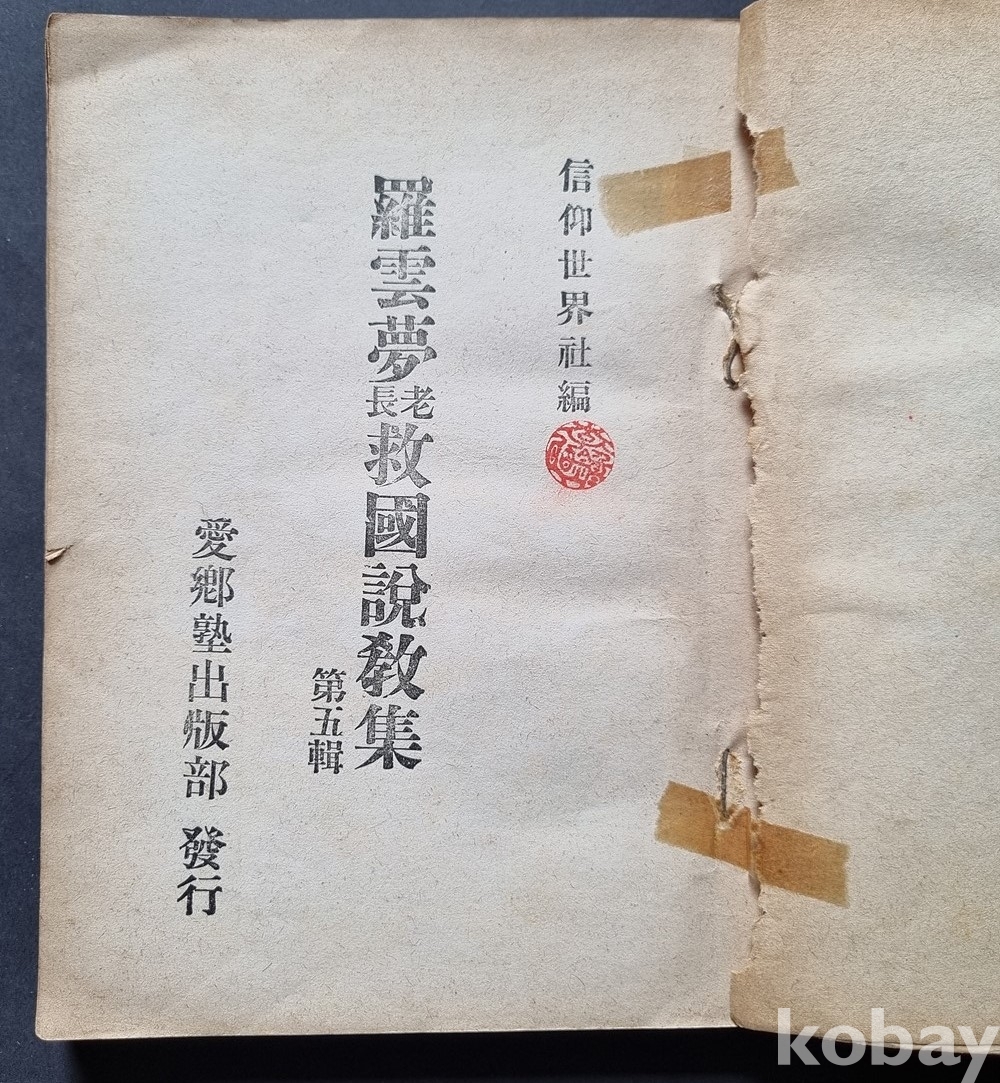 信仰世界社編
羅雲夢長老救國說敎集
第五輯
愛鄕塾出版部 發行
kobay